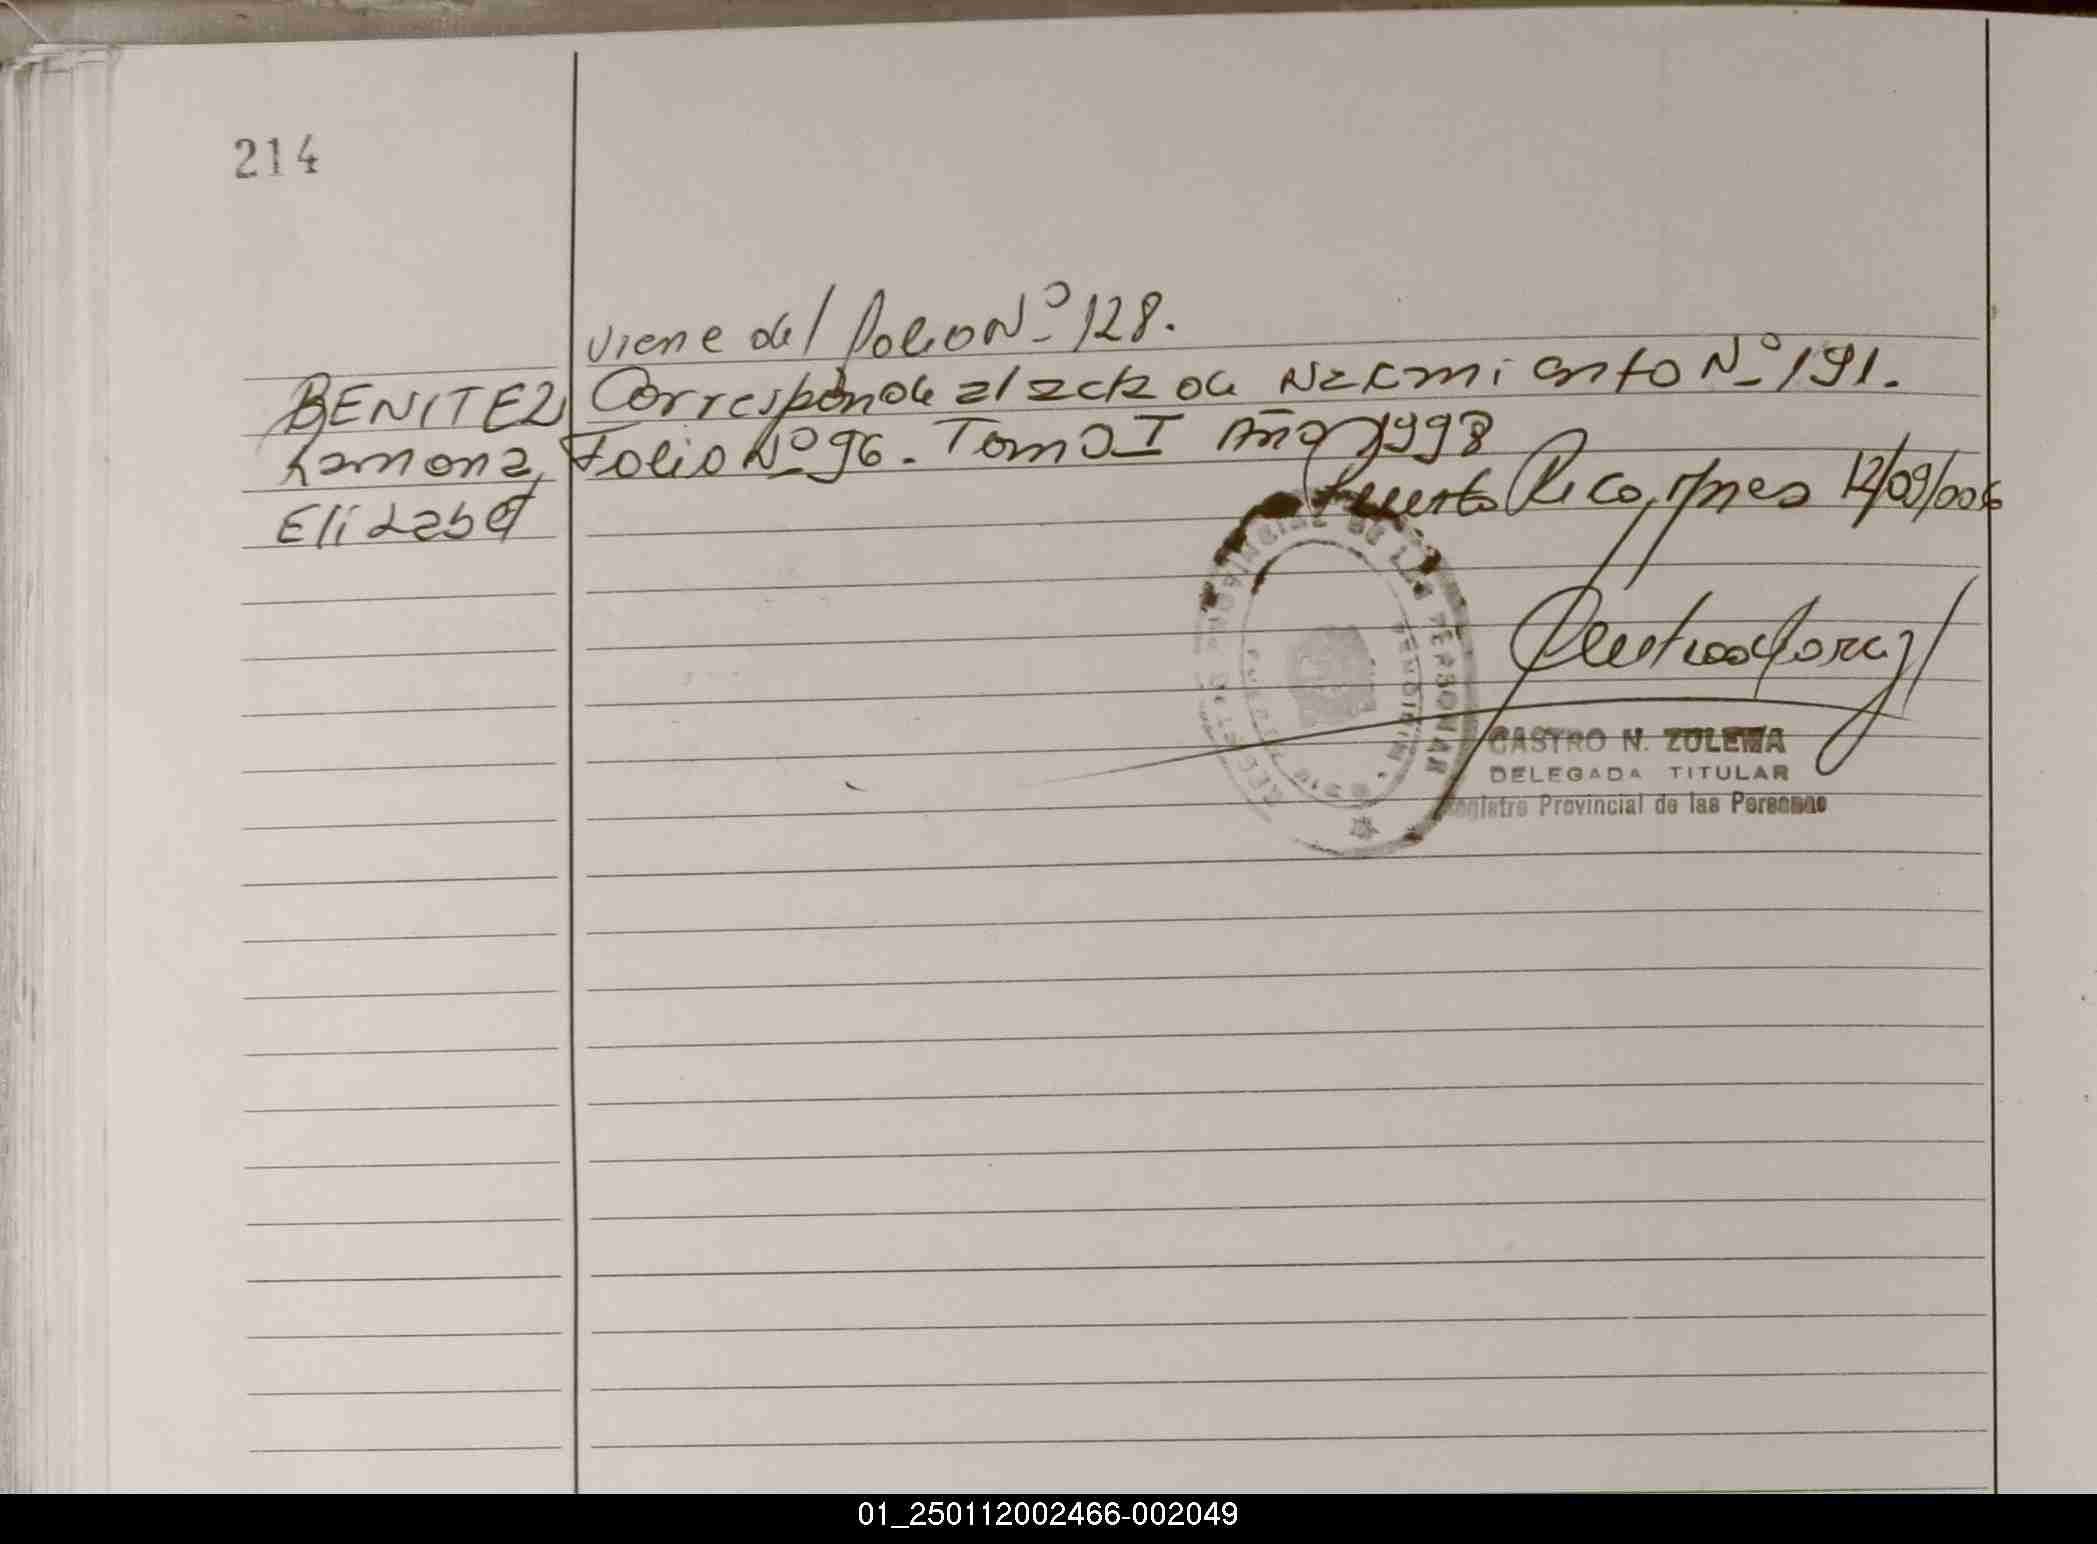 214
Viene del folio Nº 128.
BENITEZ Corresponde al acta de Nacimiento Nº 191.
Ramona, Folio Nº 96. Tomo I Año 1998
Elizabet
Puerto Rico, Mnes 12/09/006
REGISTRO PROVINCIAL DE LAS PERSONAS
CASTRO N. ZULEMA
DELEGADA TITULAR
Registro Provincial de las Personas
01_250112002466-002049